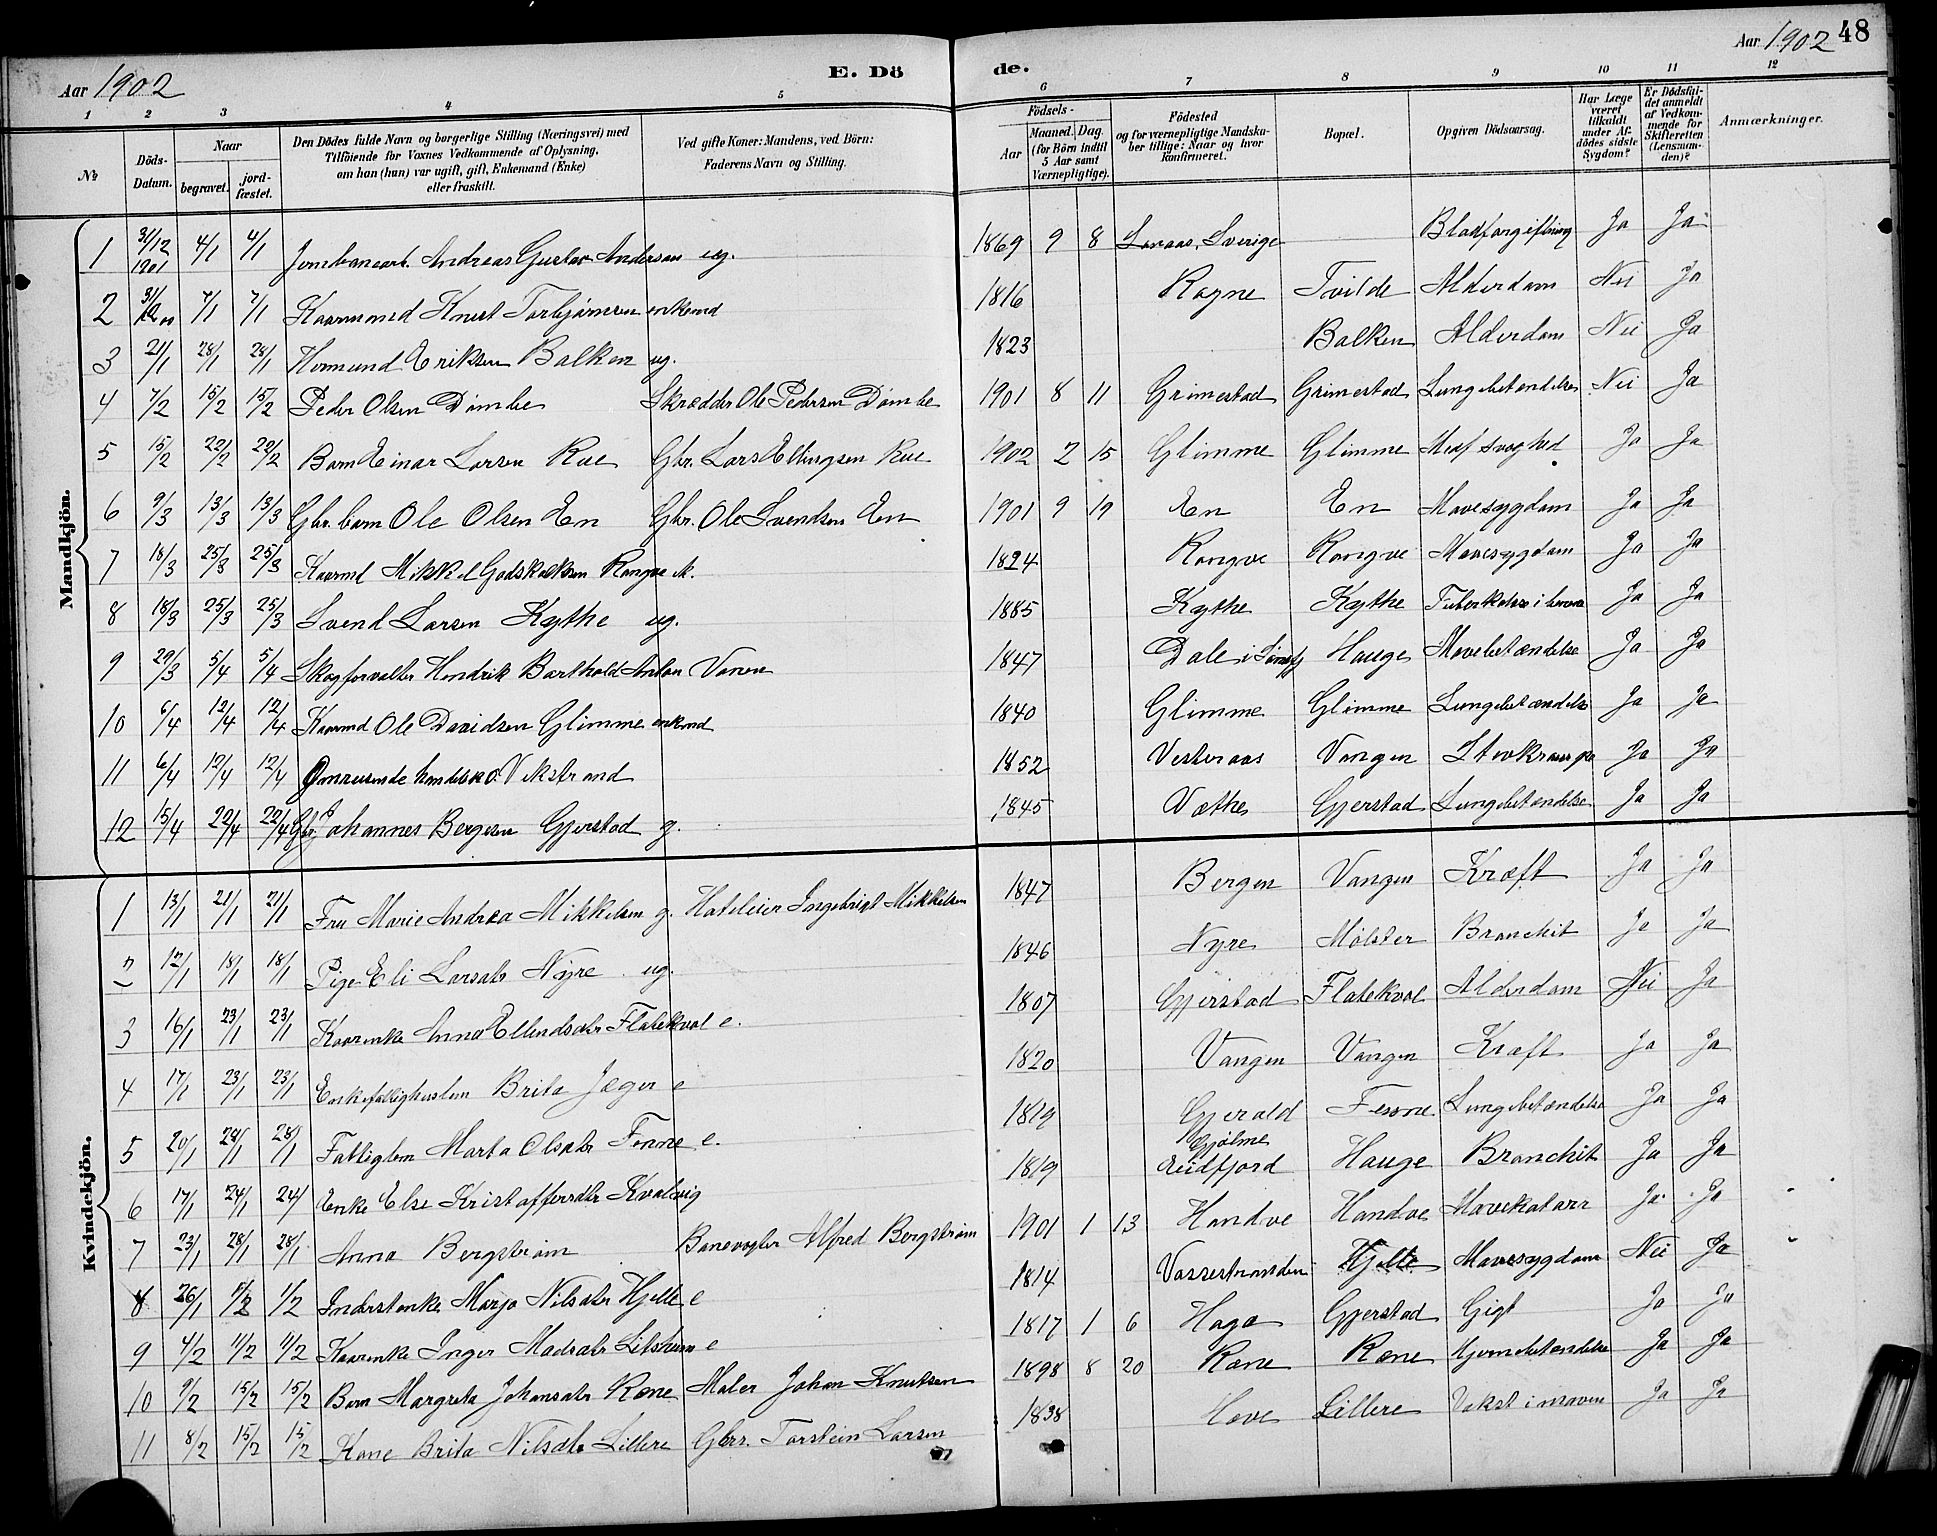 Aar 1902 E. Dö de. Aar 1902 48
1 2 3 4 5 6 7 8 9 10 11 12
№ Döds-Datum. Naar begravet. jord-fæstet. Den Dödes fulde Navn og borgerlige Stilling (Næringsvei) med Tilföiende for Voxnes Vedkommende af Oplysning, om han (hun) var ugift, gift, Enkemand (Enke) eller fraskilt. Ved gifte Koner: Mandens, ved Börn: Faderens Navn og Stilling. Födsels- Aar Maaned. Dag. (for Börn indtil 5 Aar samt Værnepligtige). Födested og for værnepligtige Mandskaber tillige: Naar og hvor konfirmeret. Bopæl. Opgiven Dödsaarsag. Har Læge været tilkaldt under Afdödes sidste Sygdom? Er Dödsfaldet anmeldt af Vedkommende for Skifteretten (Lensmanden)? Anmærkninger.
Mandkjön.
1 31/12 1901 4/1 4/1 Jernbanearb. Andreas Gustav Andersen ug. 1869 9 8 Sverige Blodforgiftning Ja Ja
2 31/12 01 7/1 7/1 Kaarmand Knut Torbjørnsen enkemd 1816 Rogne Tvilde Alderdom Nei Ja
3 21/1 28/1 28/1 Hermund Eriksen Balken ug. 1823 Balken Alderdom Nei Ja
4 7/2 15/2 15/2 Peder Olsen Dømbe Skrædder Ole Pedersen Dømbe 1901 8 11 Grimestad Grimestad Lungebetændelse Nei Ja
5 15/2 22/2 22/2 Barn Einar Larsen Rue Gbr. Lars Ellingsen Rue 1902 2 15 Glimme Glimme Medf. svaghed Ja Ja
6 9/3 13/3 13/3 Gbr. barn Ole Olsen En Gbr. Ole Svendsen En 1901 9 19 En En Mavesygdom Ja Ja
7 18/3 25/3 25/3 Kaarmd Mikkel Godskalksen Rongve 1824 Rongve Rongve Mavesygdom Ja Ja
8 18/3 25/3 25/3 Svend Larsen Kythe ug. 1885 Kythe Kythe Tuberkelose i Ja Ja
9 29/3 5/4 5/4 Skogforvalter Hendrik Barthold Anton Vonen 1847 Dale i Hauge Mavebetændelse Ja Ja
10 6/4 12/4 12/4 Kaarmd Ole Davidsen Glimme enkemd 1840 Glimme Glimme Lungebetændelse Ja Ja
11 6/4 12/4 12/4 Omreisende O. Vikstrand 1852 Vesteraas Vangen Ja Ja
12 15/4 22/4 22/4 Gbr. Johannes Bergesen Gjerstad g. 1845 Væthe Gjerstad Lungebetændelse Ja Ja
Kvindekjön.
1 13/1 21/1 21/1 Fru Marie Andrea Mikkelsen g. Hoteleier Ingebrigt Mikkelsen 1847 Bergen Vangen Kræft Ja Ja
2 12/1 18/1 18/1 Pige Eli Larsdtr Nyre ug. 1846 Nyre Mølster Bronchit Ja Ja
3 16/1 23/1 23/1 Kaarenke Anna Ellendsdtr Flatekval e. 1807 Gjerstad Flatekval Alderdom Nei Ja
4 17/1 23/1 23/1 Enke fattighuslem Brita Jæger e 1820 Vangen Vangen Kræft Ja Ja
5 20/1 28/1 28/1 Fattiglem Marta Olsdtr Fenne e. 1819 Gjerald Fenne Lungebetændelse Ja Ja
6 17/1 24/1 24/1 Enke Else Kristoffersdtr Kvalvig 1819 Gjølme Eidfjord Hauge Bronchit Ja Ja
7 23/1 28/1 28/1 Anna Bergstrøm Banevogter Alfred Bergstrøm 1901 1 13 Handve Handve Mavekatarr Ja Ja
8 26/1 1/2 1/2 Inderstenke Marjo Nilsdtr Hjelle e 1814 Vossestranden Hjelle Mavesygdom Nei Ja
9 4/2 11/2 11/2 Kaarenke Inger Madsdtr Litsheim e 1817 1 6 Haga Gjerstad Gigt Ja Ja
10 9/2 15/2 15/2 Barn Margreta Johansdtr Rene Maler Johan Knutsen 1898 8 20 Rene Rene Hjernebetændelse Ja Ja
11 8/2 15/2 15/2 Kone Brita Nilsdtr Lillere Gbr. Torstein Larsen 1838 Hove Lillere Vekst i maven Ja Ja